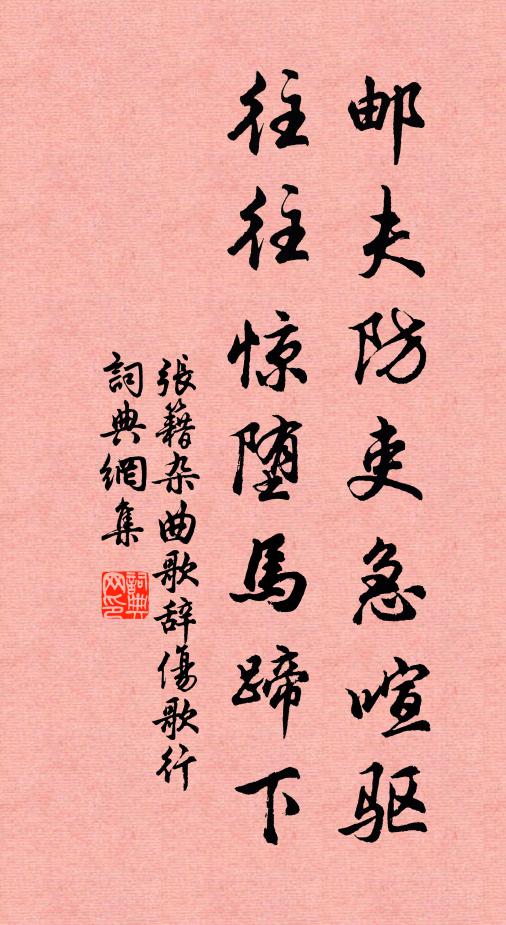 邮夫防吏急喧驱
往往惊堕马蹄下
張籍杂曲歌辞傷歌行
詞典網集
詞典网印